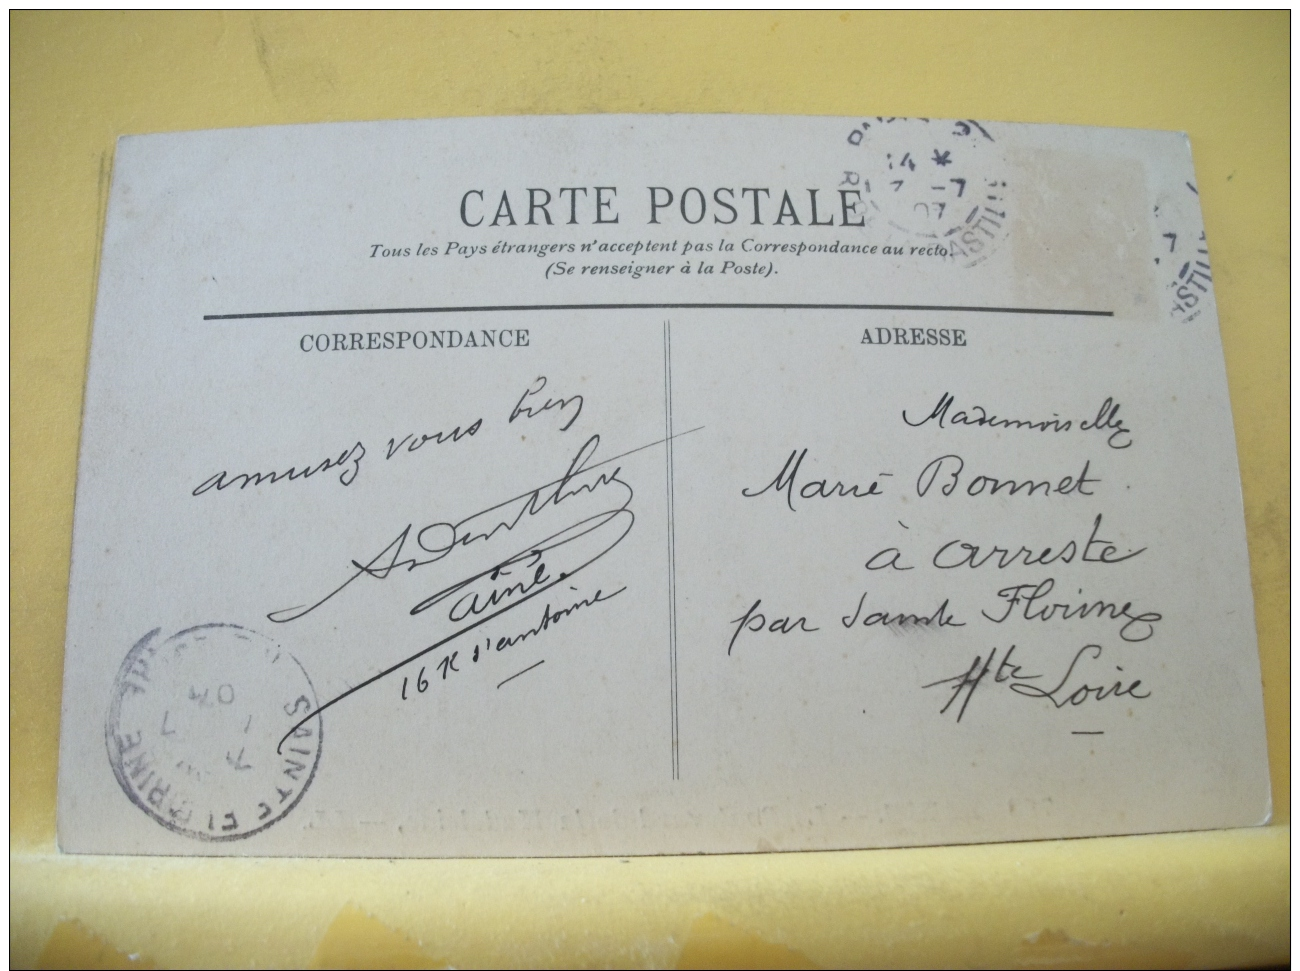 CARTE POSTALE
Tous les Pays étrangers n'acceptent pas la Correspondance au recto.
(Se renseigner à la Poste).
CORRESPONDANCE
amusez vous bien
ainé.
16 R d'antoine
ADRESSE
Mademoiselle
Marie Bonnet
à Arreste
par Sainte Florine
Hte Loire
14 *
7 -7
07
7
SAINTE FLORINE
07